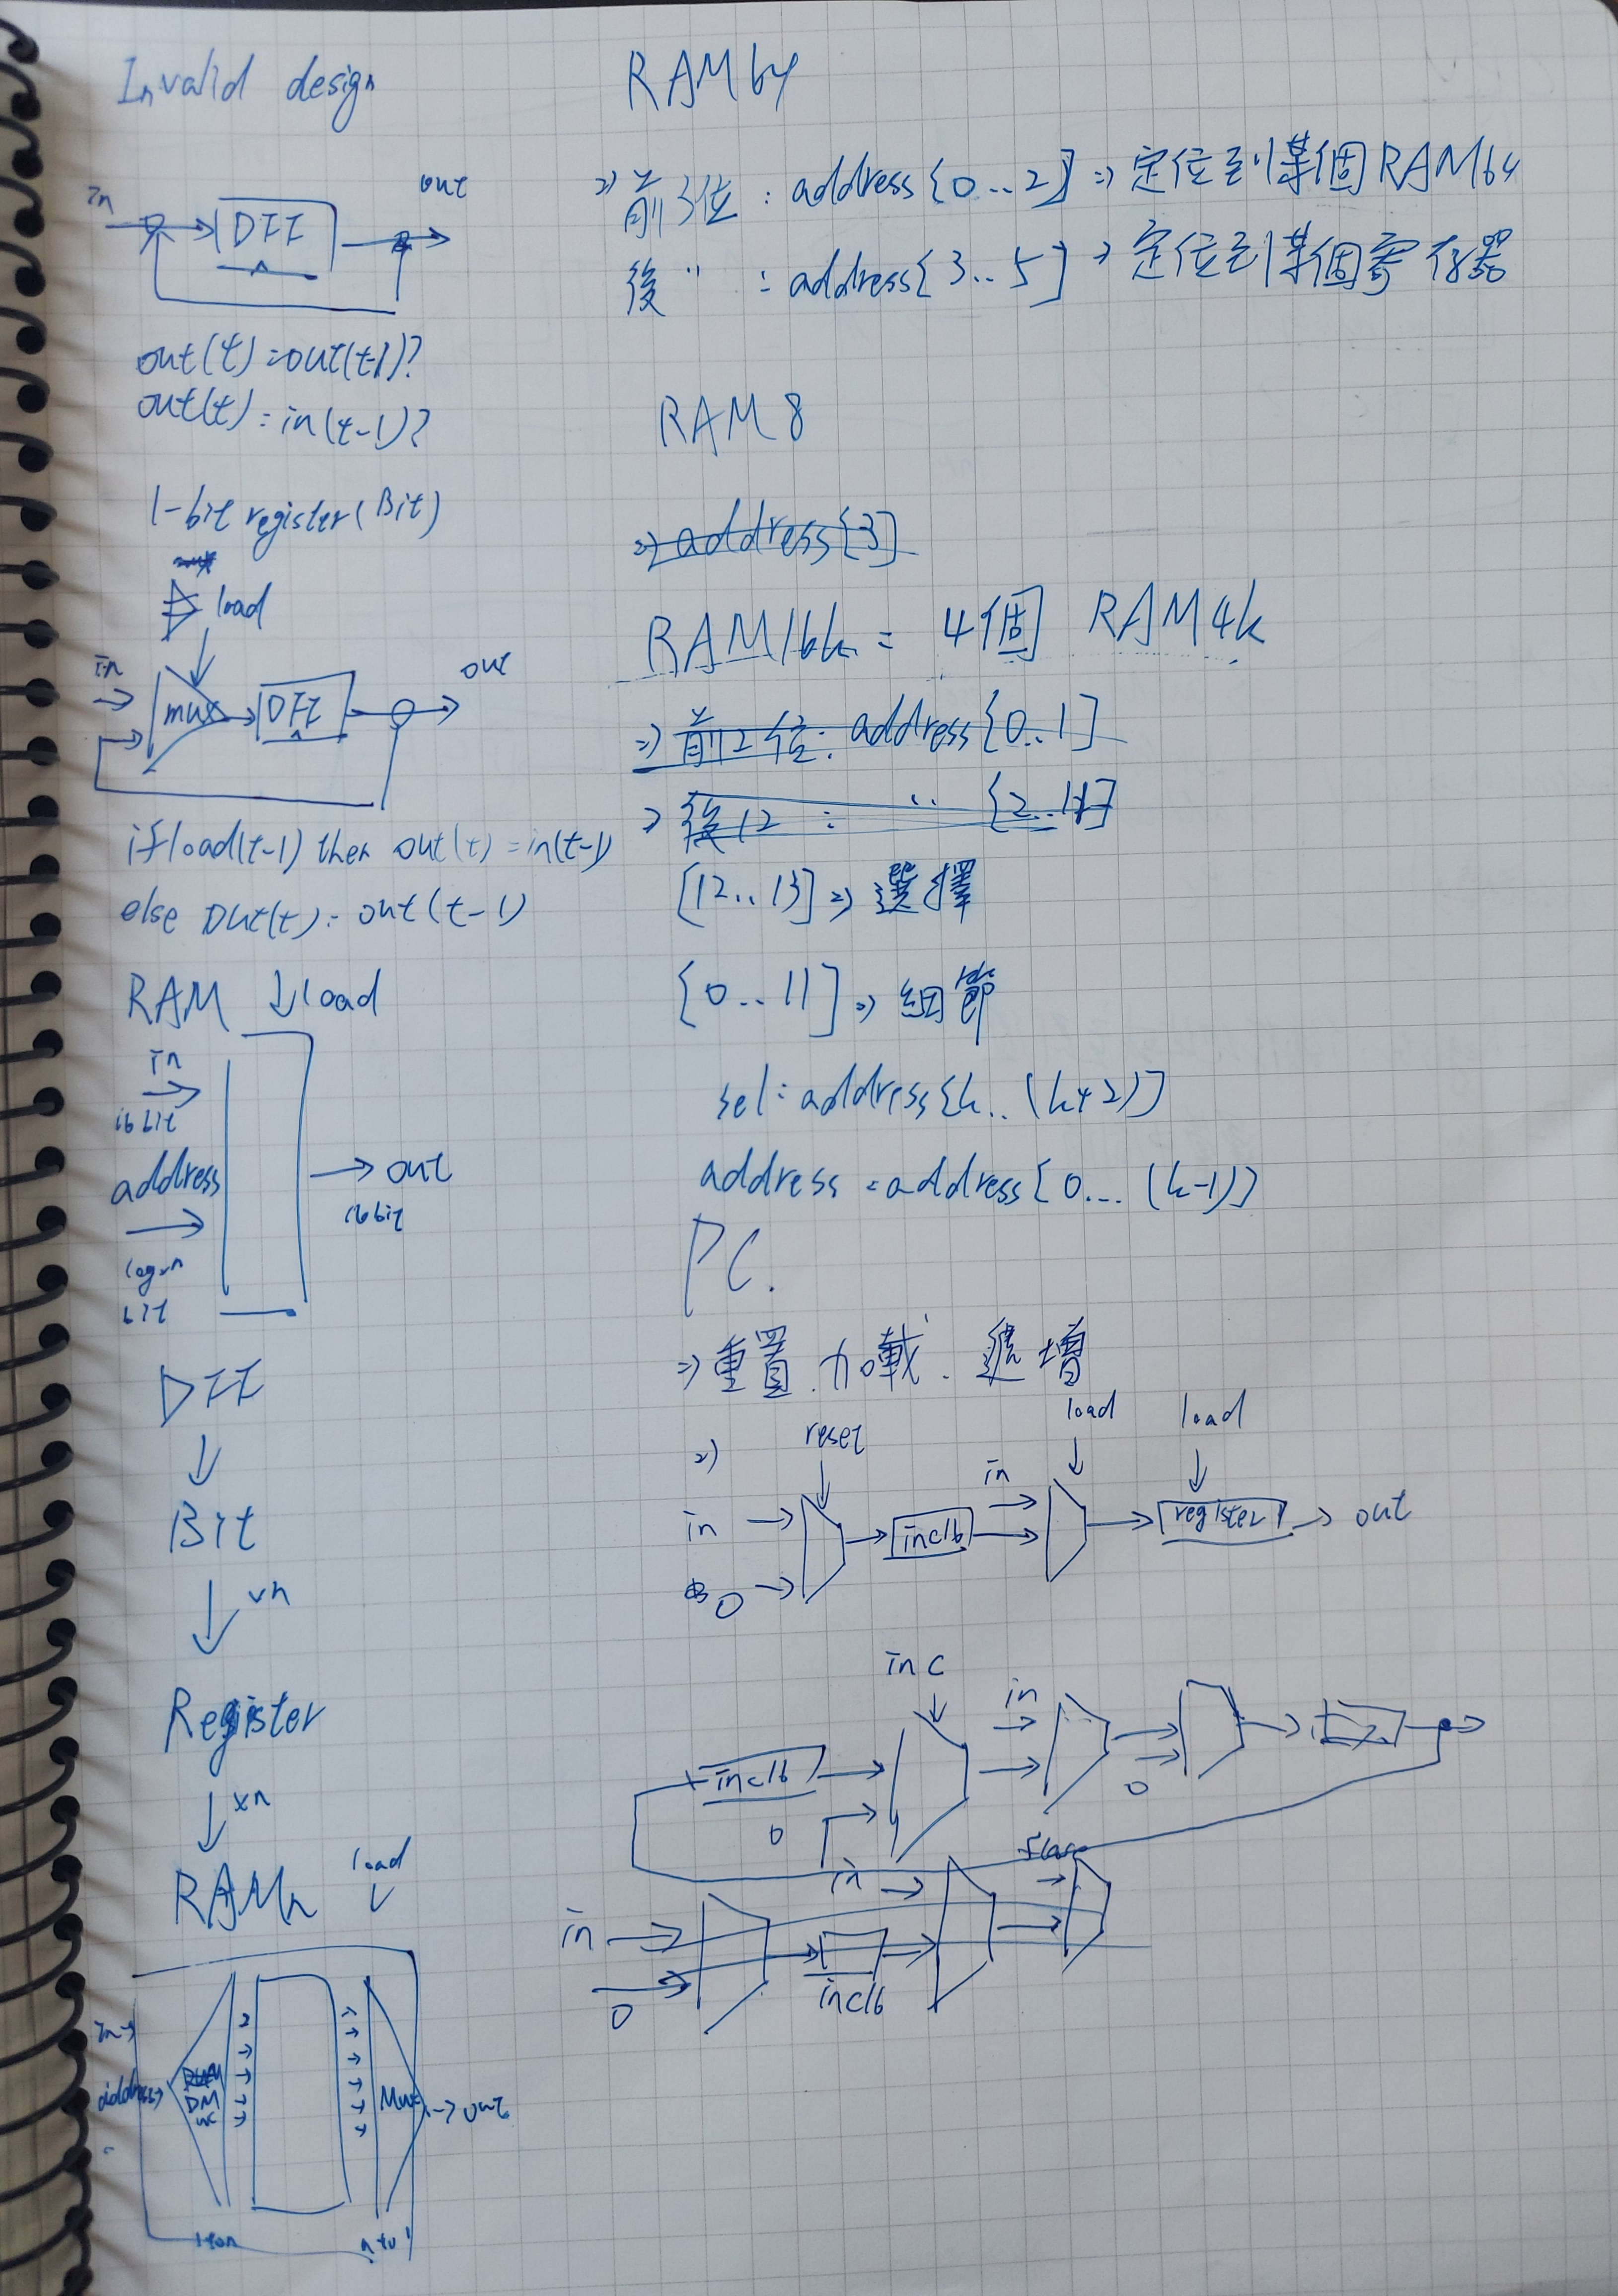 Invalid design
in
out
DFF
out(t)=out(t-1)?
out(t)=in(t-1)?
1-bit register(Bit)
load
in
out
mux
DFF
if load(t-1) then out(t)=in(t-1)
else out(t)=out(t-1)
RAM
load
in
16 bit
address
out
16 bit
log2n
bit
DFF
Bit
xn
Register
xn
RAMn
load
in
address
DM
ux
Mux
out
1 to n
n to 1
RAM64
⇒ 前3位 : address[0..2] ⇒ 定位到某個RAM64
後 " : address[3..5] ⇒ 定位到某個寄存器
RAM8
⇒ address[3]
RAM16k = 4個 RAM4k
⇒ 前2位: address[0..1]
⇒ 後12 : " [2..11]
[12..13] ⇒ 選擇
[0..11] ⇒ 細節
sel=address[k..(k+2)]
address=address[0...(k-1)]
PC.
⇒ 重置.加載.遞增
reset
load
load
in
in
inc16
register
out
0
inc
in
inc16
0
0
in
flase
in
0
inc16